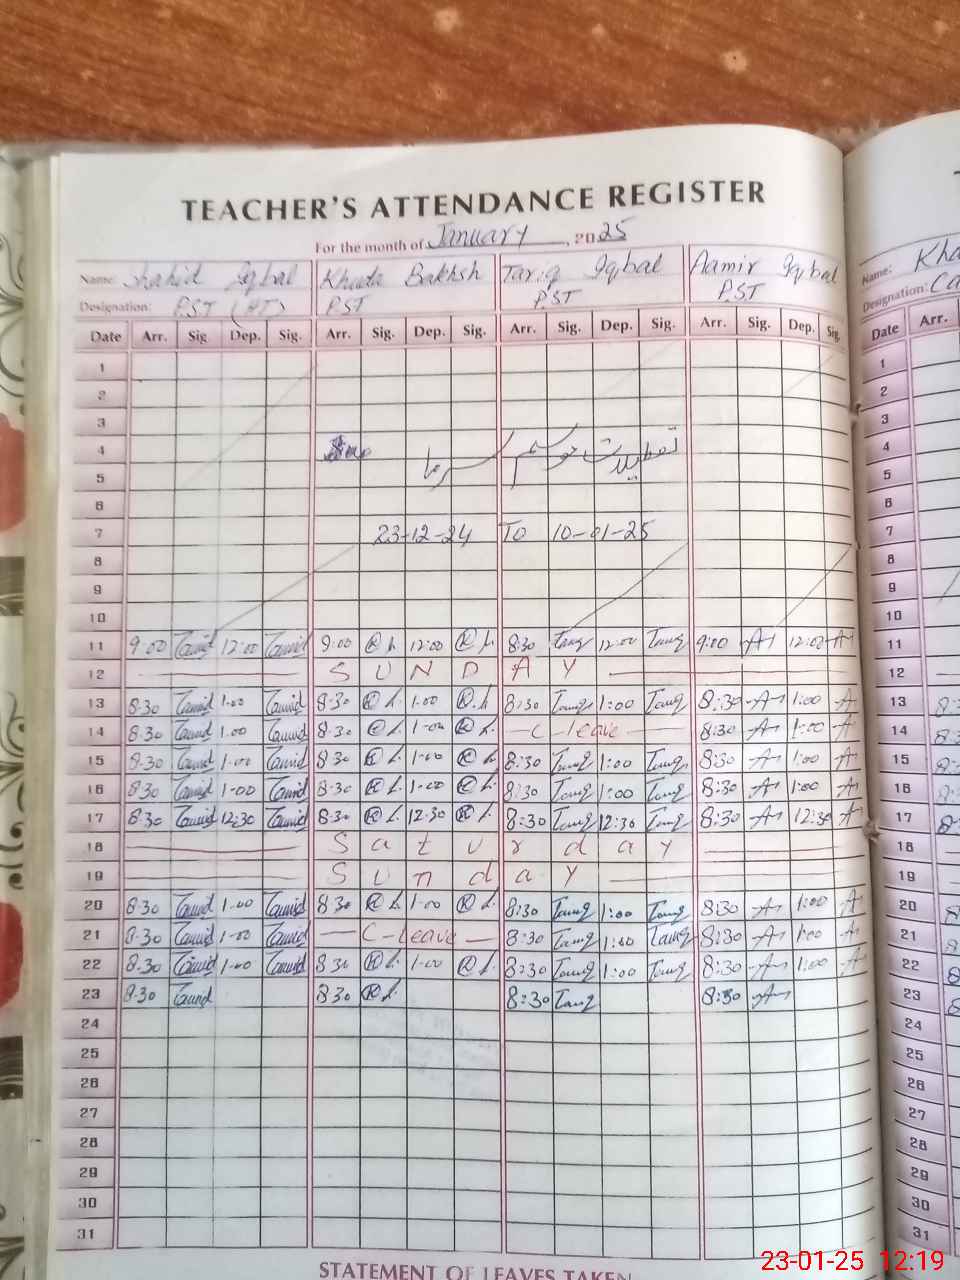 TEACHER'S ATTENDANCE REGISTER
For the month of January, 2025
Name: Shahid Iqbal Khuda Bakhsh Tariq Iqbal Aamir Iqbal
Designation: PST (HT) PST PST PST
Date Arr. Sig. Dep. Sig. Arr. Sig. Dep. Sig. Arr. Sig. Dep. Sig. Arr. Sig. Dep. Sig.
1
2
3
4 تعطیلات موسم سرما
5
6
7 23-12-24 To 10-01-25
8
9
10
11 9:00 12:00 9:00 12:00 8:30 Tariq 12:00 Tariq 9:00 12:00
12 SUNDAY
13 8:30 1:00 8:30 1:00 8:30 Tariq 1:00 Tariq 8:30 1:00
14 8:30 1:00 8:30 1:00 C-leave 8:30 1:00
15 8:30 1:00 8:30 1:00 8:30 Tariq 1:00 Tariq 8:30 1:00
16 8:30 1:00 8:30 1:00 8:30 Tariq 1:00 Tariq 8:30 1:00
17 8:30 12:30 8:30 12:30 8:30 Tariq 12:30 Tariq 8:30 12:30
18 Saturday
19 Sunday
20 8:30 1:00 8:30 1:00 8:30 Tariq 1:00 Tariq 8:30 1:00
21 8:30 1:00 C-leave 8:30 Tariq 1:00 Tariq 8:30 1:00
22 8:30 1:00 8:30 1:00 8:30 Tariq 1:00 Tariq 8:30 1:00
23 8:30 8:30 8:30 Tariq 8:30
24
25
26
27
28
29
30
31
STATEMENT OF LEAVES TAKEN
Name:
Designation:
Date Arr.
1
2
3
4
5
6
7
8
9
10
11
12
13
14
15
16
17
18
19
20
21
22
23
24
25
26
27
28
29
30
31
23-01-25 12:19